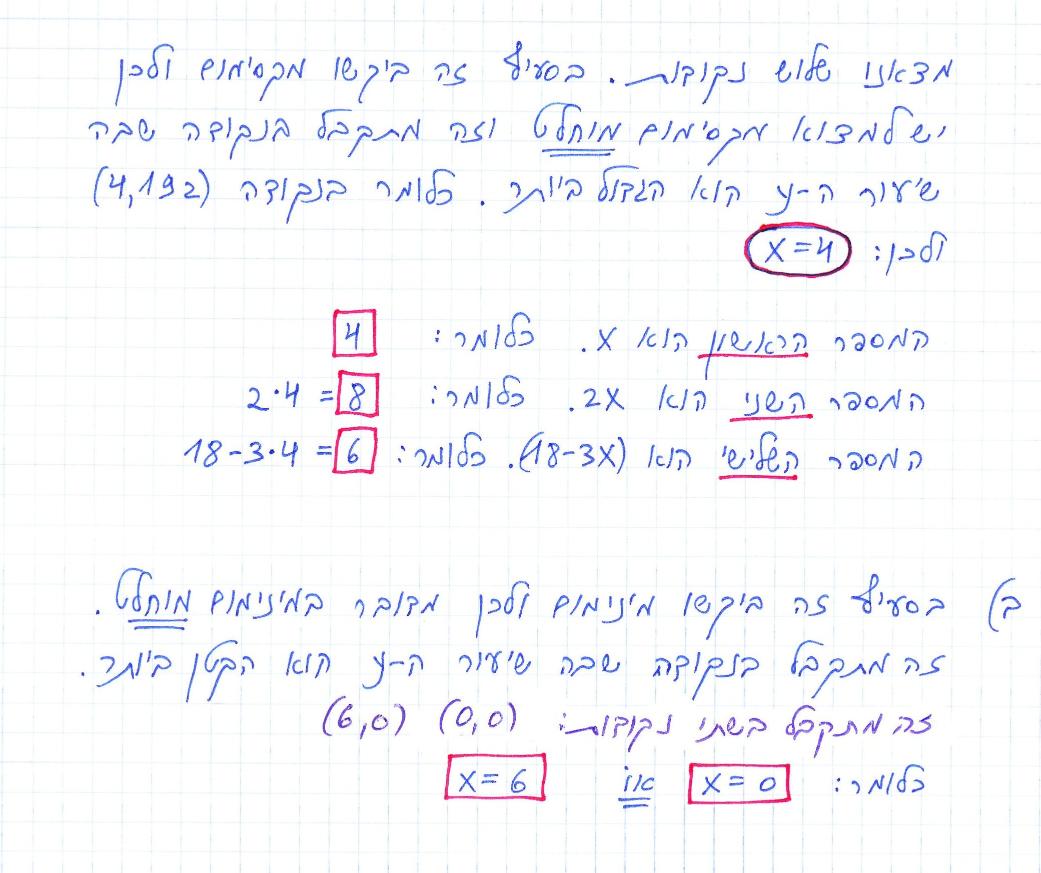 מצאנו שלוש נקודות. בסעיף זה ביקשו מקסימום ולכן
יש למצוא מקסימום מוחלט וזה מתקבל בנקודה שבה
שיעור ה-y הוא הגדול ביותר. כלומר בנקודה (4,192)
ולכן: x=4
המספר הראשון הוא x. כלומר: 4
המספר השני הוא 2x. כלומר: 2·4 = 8
המספר השלישי הוא (18-3x). כלומר: 18-3·4 = 6
ב) בסעיף זה ביקשו מינימום ולכן מדובר במינימום מוחלט.
זה מתקבל בנקודה שבה שיעור ה-y הוא הקטן ביותר.
זה מתקבל בשתי נקודות: (0,0) (6,0)
כלומר: x=0 או x=6